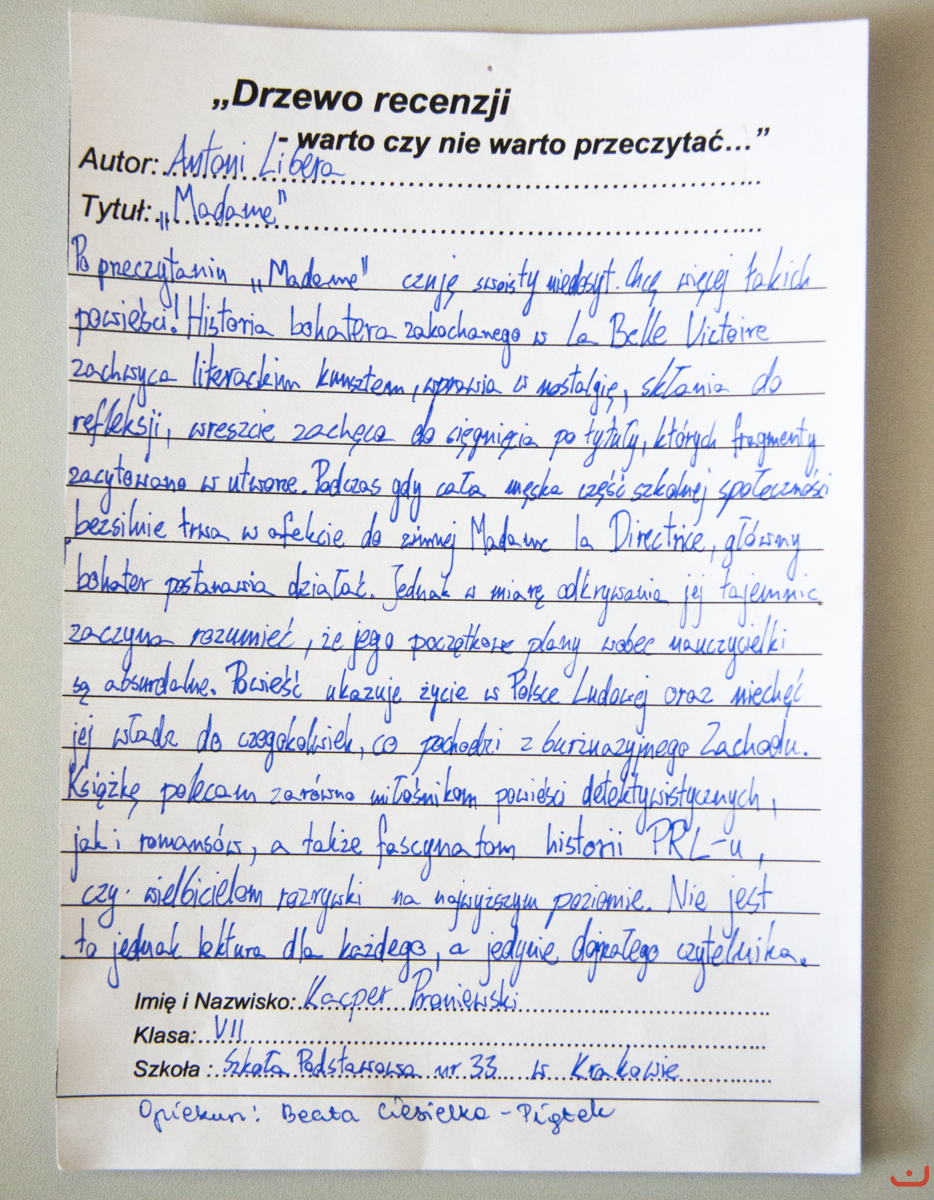 „Drzewo recenzji
- warto czy nie warto przeczytać…”
Autor: Antoni Libera
Tytuł: „Madame"
Po przeczytaniu „Madame" czuję swoisty niedosyt. Chcę więcej takich
powieści! Historia bohatera zakochanego w La Belle Victoire
zachwyca literackim kunsztem, wprawia w nostalgię, skłania do
refleksji, wreszcie zachęca do sięgnięcia po tytuły, których fragmenty
zacytowano w utworze. Podczas gdy cała męska część szkolnej społeczności
bezsilnie trwa w afekcie do zimnej Madame la Directrice, główny
bohater postanawia działać. Jednak w miarę odkrywania jej tajemnic
zaczyna rozumieć, że jego początkowe plany wobec nauczycielki
są absurdalne. Powieść ukazuje życie w Polsce Ludowej oraz niechęć
jej władz do czegokolwiek, co pochodzi z burżuazyjnego Zachodu.
Książkę polecam zarówno miłośnikom powieści detektywistycznych,
jak i romansów, a także fascynatom historii PRL-u,
czy wielbicielom rozrywki na najwyższym poziomie. Nie jest
to jednak lektura dla każdego, a jedynie dojrzałego czytelnika.
Imię i Nazwisko: Kacper Praniewski
Klasa: VII
Szkoła : Szkoła Podstawowa nr 33 w Krakowie
Opiekun: Beata Ciesielka - Piątek